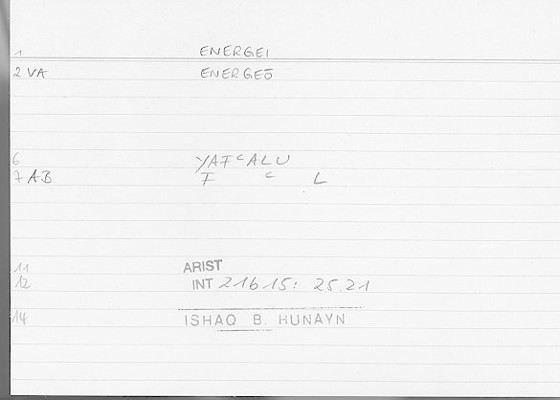 1 ENERGEI
2 VA ENERGEŌ
6 YAFᶜALU
7 AB F ᶜ L
11 ARIST
12 INT 216.15: 25.21
14 ISHAQ B. HUNAYN